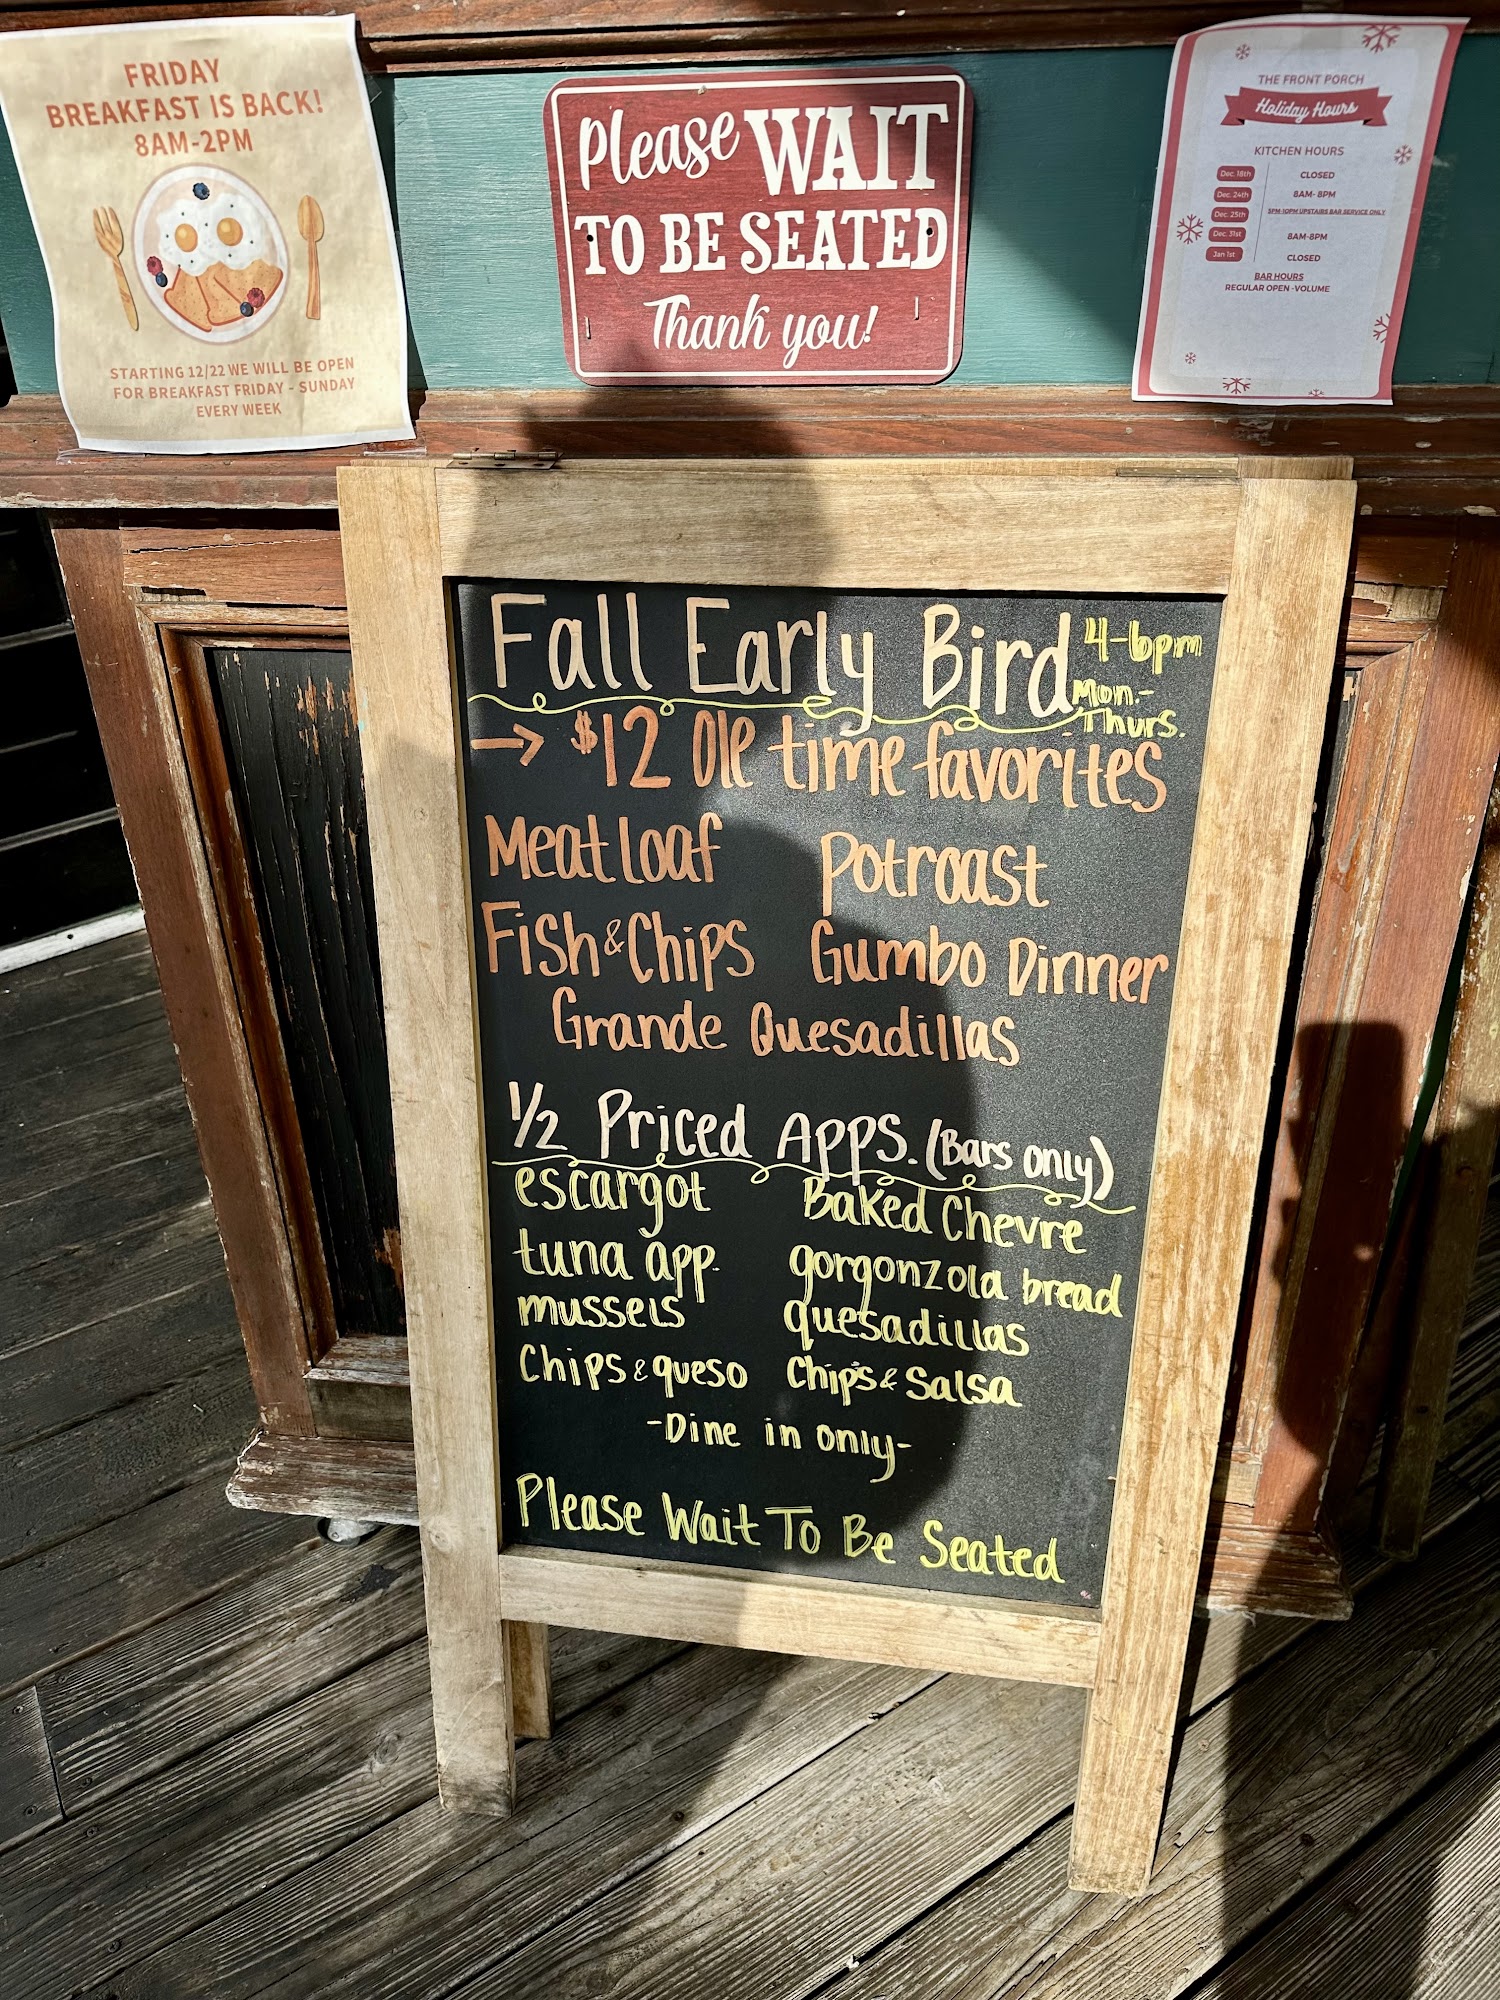 FRIDAY
BREAKFAST IS BACK!
8AM-2PM
STARTING 12/22 WE WILL BE OPEN
FOR BREAKFAST FRIDAY - SUNDAY
EVERY WEEK
Please WAIT
TO BE SEATED
Thank you!
THE FRONT PORCH
Holiday Hours
KITCHEN HOURS
Dec. 18th CLOSED
Dec. 24th 8AM- 8PM
Dec. 25th 5PM-10PM UPSTAIRS BAR SERVICE ONLY
Dec. 31st 8AM-8PM
Jan 1st CLOSED
BAR HOURS
REGULAR OPEN -VOLUME
Fall Early Bird 4-6pm
Mon.-
Thurs.
→ $12 Ole time favorites
Meatloaf Potroast
Fish & Chips Gumbo Dinner
Grande Quesadillas
1/2 Priced Apps. (Bars only)
escargot Baked Chevre
tuna app. gorgonzola bread
mussels quesadillas
Chips & queso Chips & Salsa
-Dine in only-
Please Wait To Be Seated